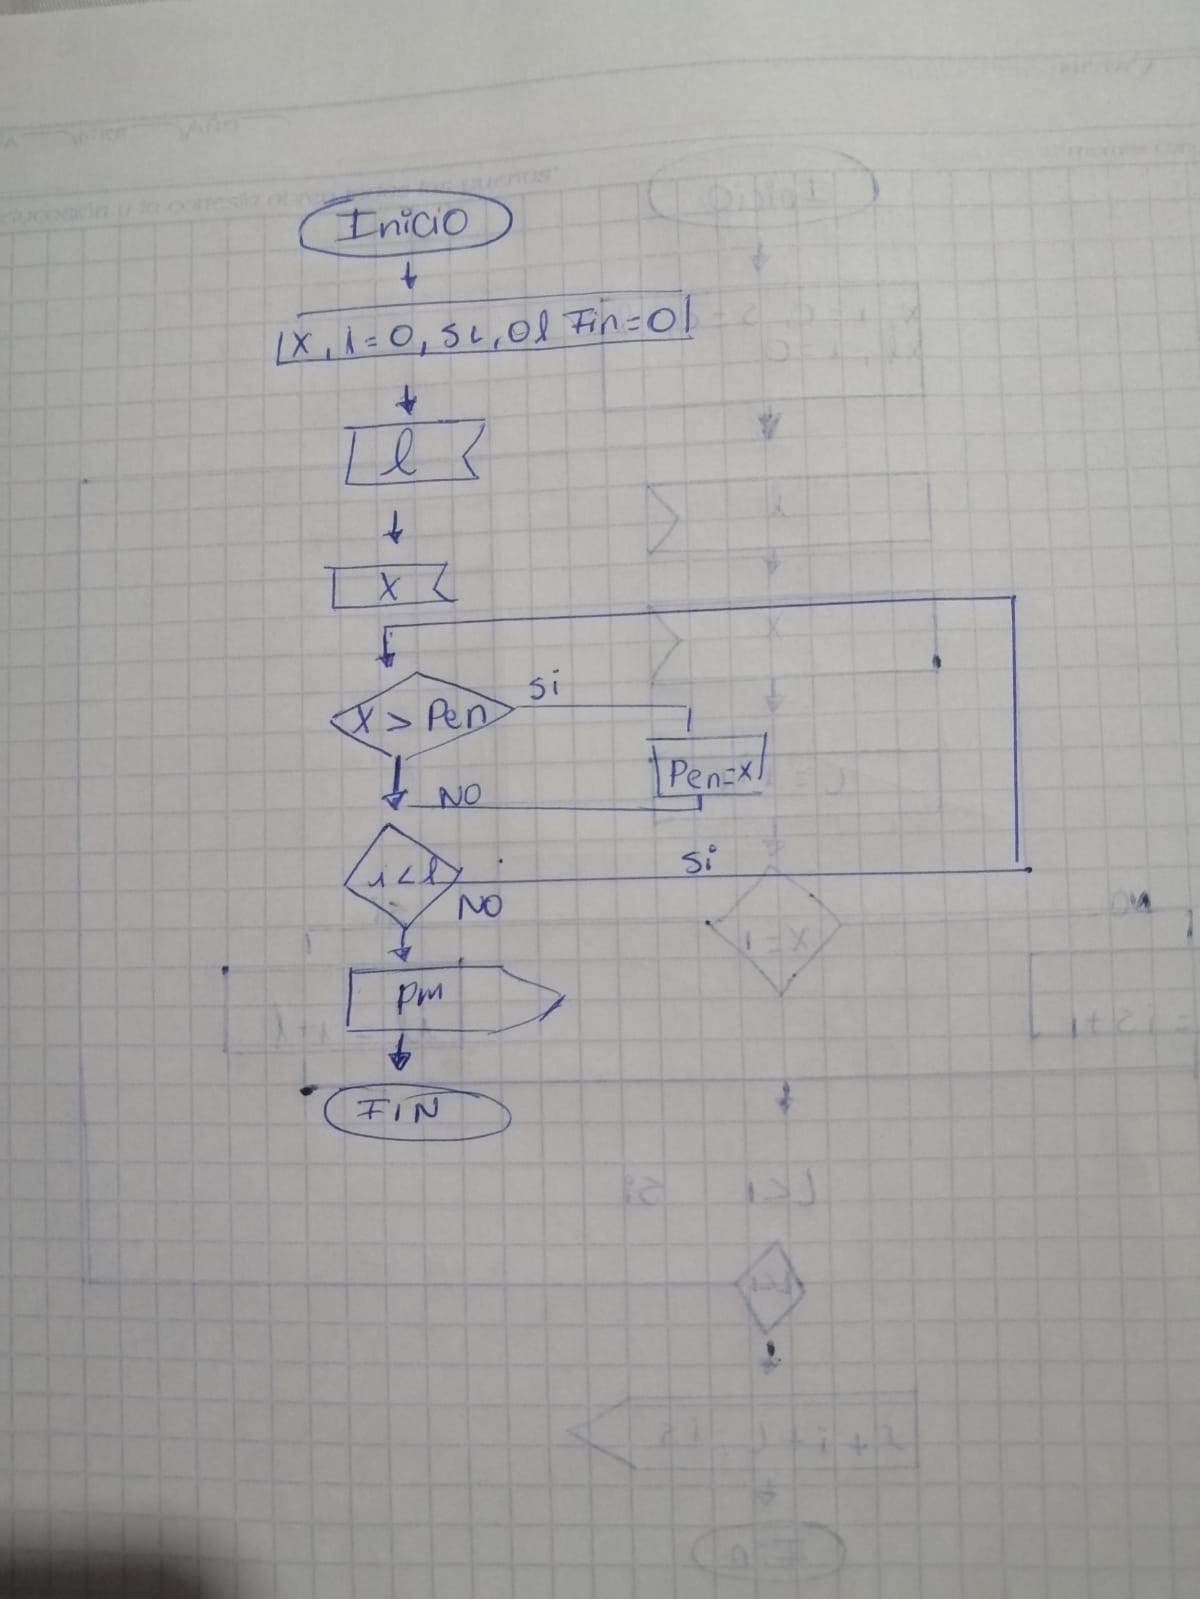 Inicio
X, i=0, Si, Ol Fin=0
l
X
X > Pen
Si
Pen=X
NO
i<l
Si
NO
Pm
FIN